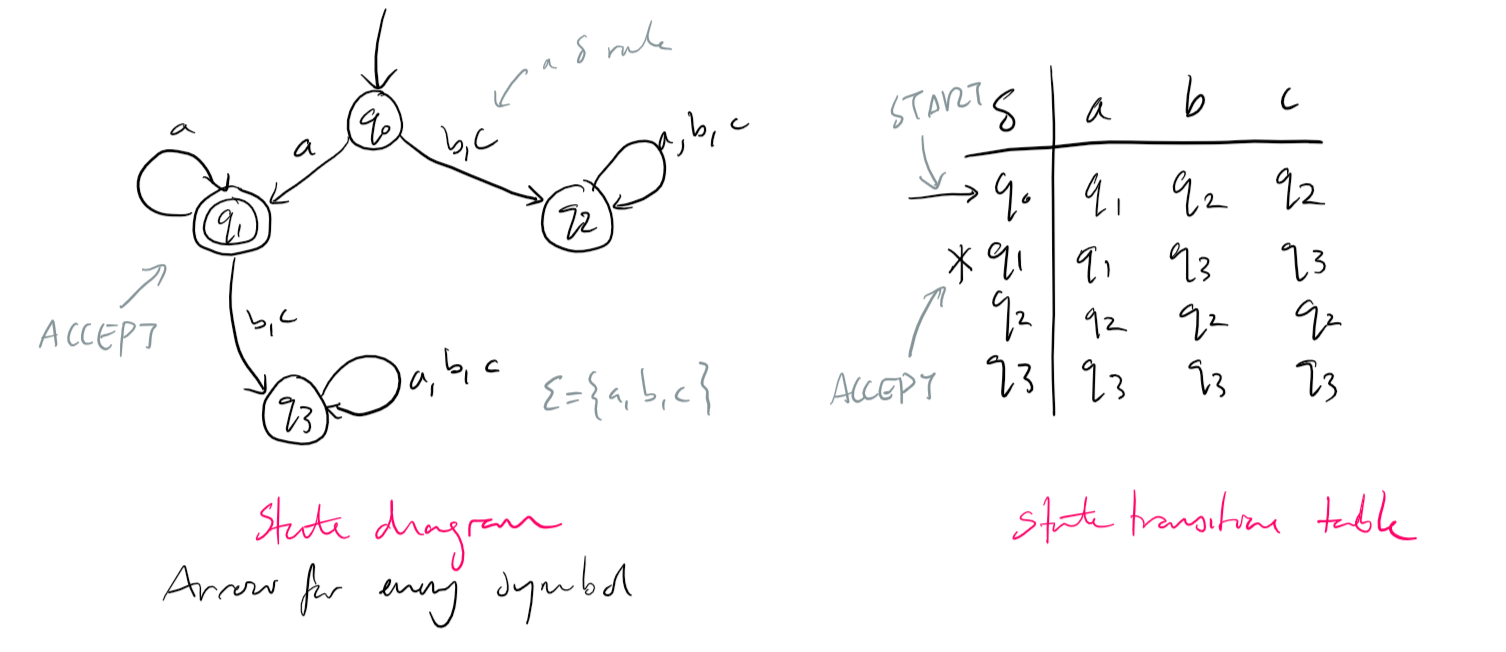 a δ rule
q0
a
b,c
a
a, b, c
q1
q2
ACCEPT
b,c
a, b, c
q3
Σ={a, b, c}
State diagram
Arrow for every symbol
START
δ a b c
q0 q1 q2 q2
* q1 q1 q3 q3
q2 q2 q2 q2
q3 q3 q3 q3
ACCEPT
State transition table